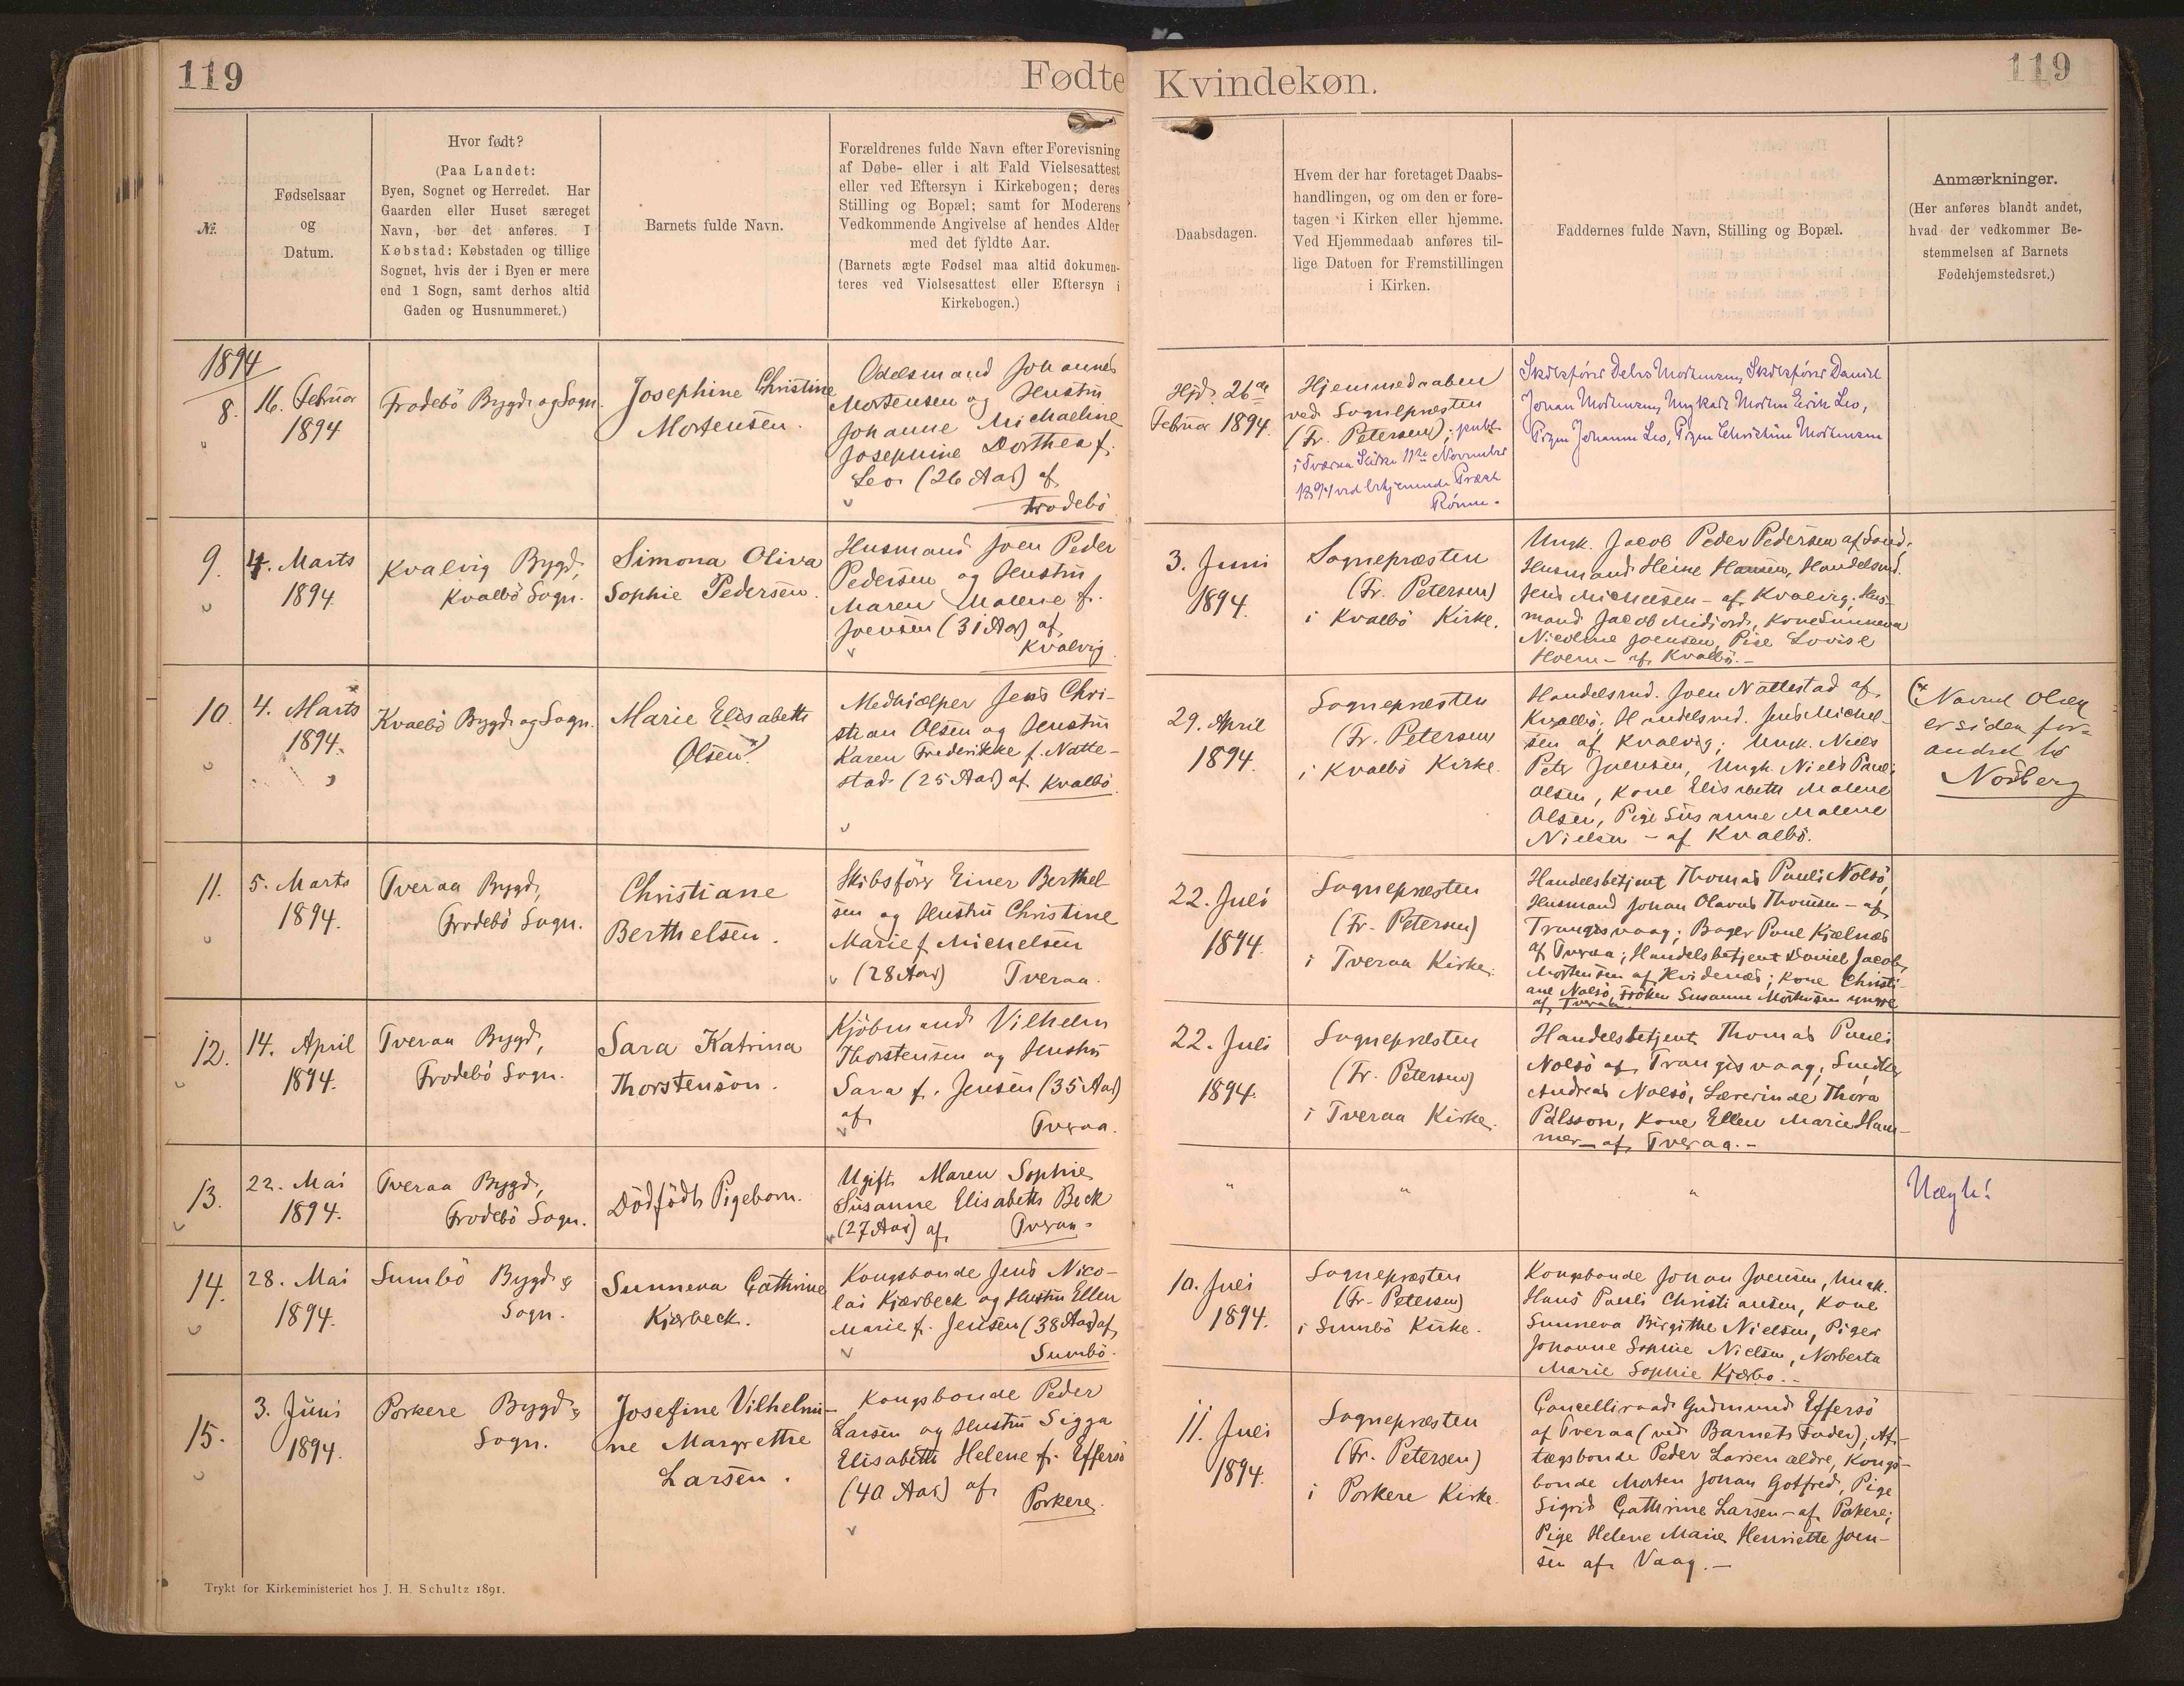 119
Fødte
Kvindekøn.
119
№.
Fødselsaar
og
Datum.
Hvor født?
(Paa Landet:
Byen, Sognet og Herredet. Har
Gaarden eller Huset særeget
Navn, bør det anføres. I
Købstad: Købstaden og tillige
Sognet, hvis der i Byen er mere
end 1 Sogn, samt derhos altid
Gaden og Husnummeret.)
Barnets fulde Navn.
Forældrenes fulde Navn efter Forevisning
af Døbe- eller i alt Fald Vielsesattest
eller ved Eftersyn i Kirkebogen; deres
Stilling og Bopæl; samt for Moderens
Vedkommende Angivelse af hendes Alder
med det fyldte Aar.
(Barnets ægte Fødsel maa altid dokumen-
teres ved Vielsesattest eller Eftersyn i
Kirkebogen.)
Daabsdagen.
Hvem der har foretaget Daabs-
handlingen, og om den er fore-
tagen i Kirken eller hjemme.
Ved Hjemmedaab anføres til-
lige Datoen for Fremstillingen
i Kirken.
Faddernes fulde Navn, Stilling og Bopæl.
Anmærkninger.
(Her anføres blandt andet,
hvad der vedkommer Be-
stemmelsen af Barnets
Fødehjemstedsret.)
1894
8.
16. Februar
1894
Frodebö Bygd og Sogn.
Josephine Christine
Mortensen.
Odelsmand Johannes
Mortensen og Hustru
Johanne Michaeline
Josephine Dorthea f.
Leo (26 Aar) af
Frodebö
Hjd. 26de
Februar 1894.
Hjemmedaaben
ved Sognepræsten
(Fr. Petersen); publ.
i Tveraa Kirke 11te November
1894 ved Præst
Rönne.
Skibsförer Mortensen, Skibsförer Daniel
Johan Mortensen, Ungkarl Morten Erik Leo,
Pigen Johanne Leo, Pigen Christine Mortensen
9.
4. Marts
1894.
Kvalvig Bygd,
Kvalbö Sogn.
Simona Oliva
Sophie Pedersen.
Husmand Joen Peder
Pedersen og Hustru
Maren Malene f.
Joensen (31 Aar) af
Kvalvig.
3. Juni
1894.
Sognepræsten
(Fr. Petersen)
i Kvalbö Kirke.
Ungk. Jacob Peder Pedersen af Sand,
Husmand Heine Hansen, Handelsmd.
Jens Michelsen - af Kvalvig; Hus-
mand Jacob Midjord, Kone Sunneva
Nicoline Joensen, Pige Lovise
Holm - af Kvalbö. -
10.
4. Marts
1894.
Kvalbö Bygd og Sogn.
Marie Elisabeth
Olsen*)
Medhjælper Jens Chri-
stian Olsen og Hustru
Karen Frederikke f. Natte-
stad (25 Aar) af Kvalbö.
29. April
1894.
Sognepræsten
(Fr. Petersen)
i Kvalbö Kirke.
Handelsmd. Joen Nattestad af
Kvalbö. Handelsmd. Jens Michel-
sen af Kvalvig; Ungk. Niels
Peter Joensen, Ungk. Niels Pauli
Olsen, Kone Elisabeth Malene
Olsen, Pige Susanne Malene
Nielsen - af Kvalbö.
(* Navnet Olsen
er siden for-
andret til
Nordberg
11.
5. Marts
1894.
Tveraa Bygd,
Frodebö Sogn.
Christiane
Berthelsen.
Skibsförer Einer Berthel-
sen og Hustru Christine
Marie f. Michelsen
(28 Aar) Tveraa.
22. Juli
1894.
Sognepræsten
(Fr. Petersen)
i Tveraa Kirke.
Handelsbetjent Thomas Pauli Nolsö,
Husmand Johan Olavus Thomsen - af
Trangisvaag; Bager Poul Kjølnæs
af Tveraa; Handelsbetjent Daniel Jacob
Mortensen af Hvidenæs; Kone Christi-
ane Nolsö, Fröken Susanne Mortensen yngre
af Tveraa.
12.
14. April
1894.
Tveraa Bygd,
Frodebö Sogn.
Sara Katrina
Thorstenson.
Kjöbmand Vilhelm
Thorstensen og Hustru
Sara f. Jensen (35 Aar)
af Tveraa.
22. Juli
1894.
Sognepræsten
(Fr. Petersen)
i Tveraa Kirke.
Handelsbetjent Thomas Pauli
Nolsö af Trangisvaag; Snedker
Andreas Nolsö, Lærerinde Thora
Pálsson, Kone Ellen Marie Ham-
mer - af Tveraa. -
13.
22. Mai
1894.
Tveraa Bygd,
Frodebö Sogn.
Dödfödt Pigebarn.
Ugift Maren Sophie
Susanne Elisabeth Beck
(27 Aar) af Tveraa.
"
"
"
Uægte!
14.
28. Mai
1894.
Sumbö Bygd &
Sogn.
Sunneva Cathrine
Kjærbeck.
Kongsbonde Jens Nico-
lai Kjærbeck og Hustru Ellen
Marie f. Jensen (38 Aar) af
Sumbö.
10. Juli
1894.
Sognepræsten
(Fr. Petersen)
i Sumbö Kirke.
Kongsbonde Johan Joensen, Ungk.
Hans Pauli Christiansen, Kone
Sunneva Birgithe Nielsen, Piger
Johanne Sophie Nielsen, Norberta
Marie Sophie Kjærbo. -
15.
3. Juni
1894.
Porkere Bygd &
Sogn.
Josefine Vilhelmi-
ne Margrethe
Larsen.
Kongsbonde Peder
Larsen og Hustru Sigga
Elisabeth Helene f. Effersö
(40 Aar) af Porkere.
11. Juli
1894.
Sognepræsten
(Fr. Petersen)
i Porkere Kirke.
Cancelliraad Gudmund Effersö
af Tveraa (ved Barnets Fader); Af-
tægsbonde Peder Larsen ældre, Kongs-
bonde Morten Johan Gotfred, Pige
Sigrid Cathrine Larsen - af Porkere;
Pige Helene Marie Henriette Joen-
sen af Vaag. -
Trykt for Kirkeministeriet hos J. H. Schultz 1891.